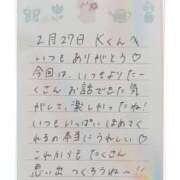 2月27日 Kくんへ
いつもありがとう♡
今回は、いつもよりたー
くさんお話できた気
がして、楽しかったね!
いつもいっぱいほめてく
れるの本当にうれしい♡
これからもたくさん
思い出つくろうね♡